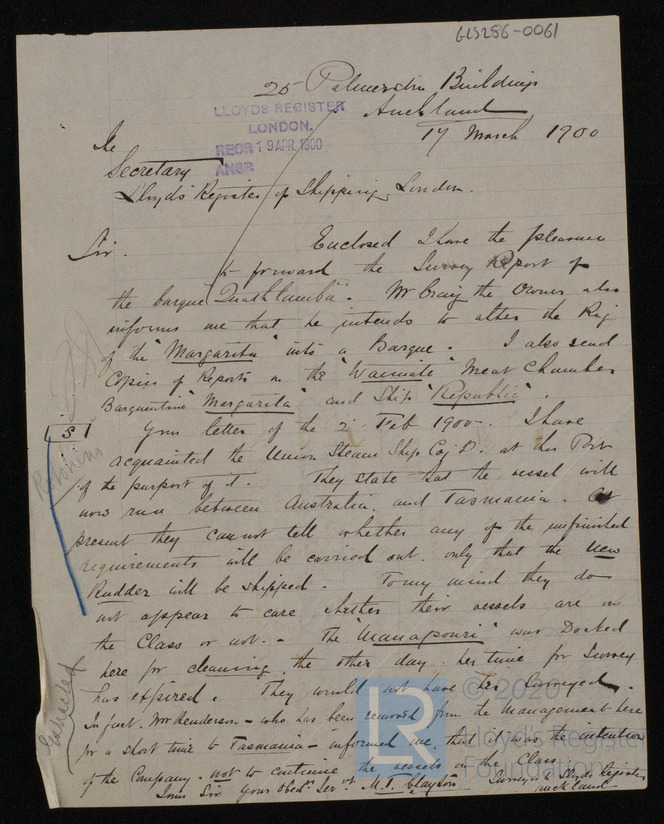 GLS286-0061
25 Palmerston Buildings
Auckland
17 March 1900
LLOYDS REGISTER
LONDON.
RECR 19 APR. 1900
ANSR
The
Secretary
Lloyd's Register of Shipping, London.
Sir.
Enclosed I have the pleasure
to forward the Survey Report of
the barque "Quathlamba". Mr Craig the Owner also
informs me that he intends to alter the Rig
of the "Margarita" into a Barque. I also send
Copies of Reports on the "Waimate" Meat Chamber
Barquentine "Margarita" and Ship "Republic".
S
Your letter of the 2 Feb 1900. I have
acquainted the Union Steam Ship Coy at this Port
of the purport of it. They state that the vessel will
now run between Australia and Tasmania. At
present they can not tell whether any of the unfinished
requirements will be carried out only that the New
Rudder will be shipped. To my mind they do
not appear to care whether their vessels are in
the Class or not. - The "Manapouri" was Docked
here for cleaning the other day her time for Survey
has expired. They would not have her surveyed.
In fact Mr Henderson - who has been removed from the Management here
for a short time to Tasmania - informed me that it was the intention
of the Company not to continue the vessels in the Class.
I am Sir Your Obedt Servt M. T. Clayton Surveyor Lloyds Register
Auckland
Extracted
LR
© 2020
Lloyd's Register
Foundation